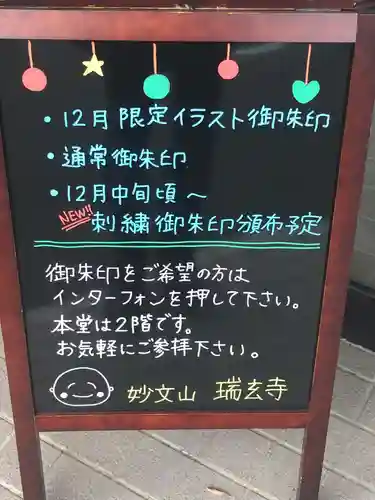 ・12月限定イラスト御朱印
・通常御朱印
・12月中旬頃〜
NEW!! 刺繍御朱印頒布予定
御朱印をご希望の方は
インターフォンを押して下さい。
本堂は2階です。
お気軽にご参拝下さい。
妙文山 瑞玄寺